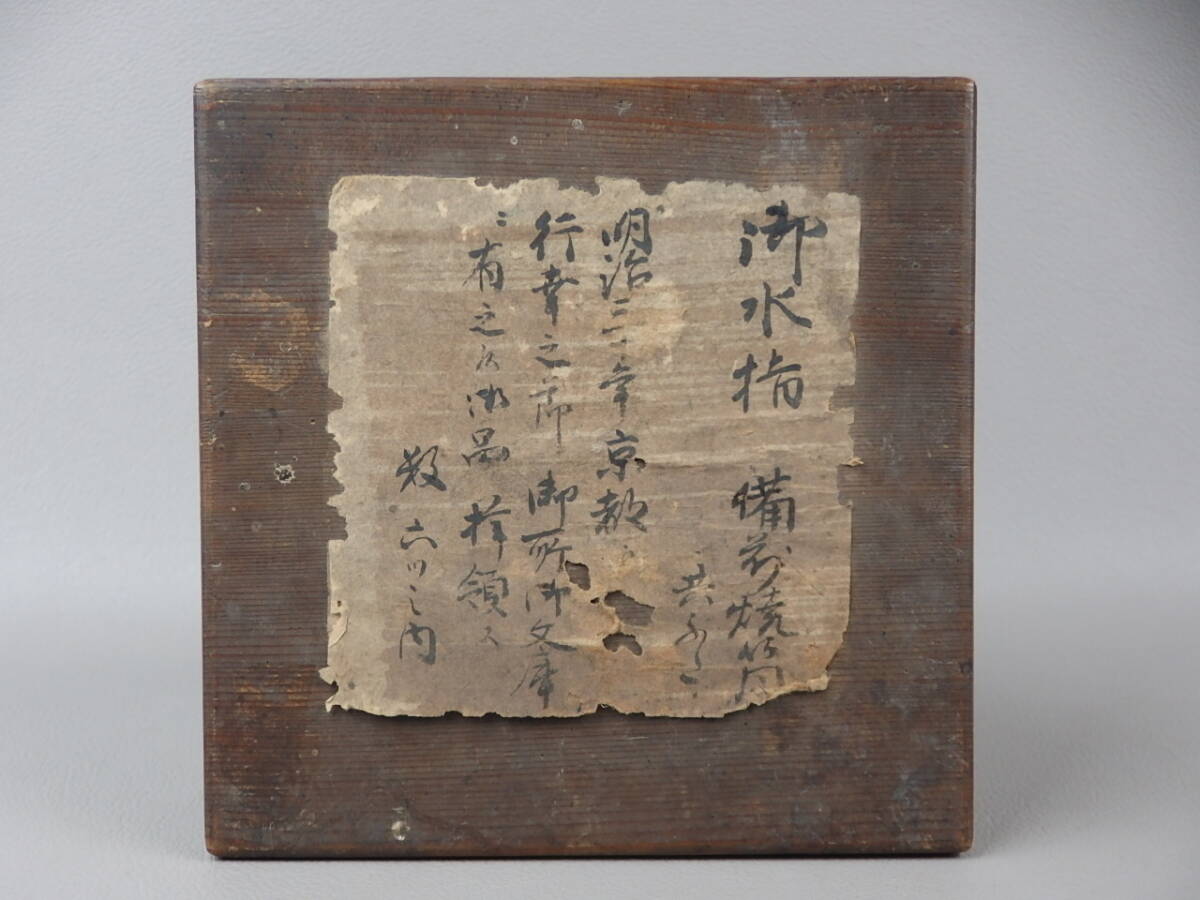 御水指 備前焼筒
共ふた
明治三十年京都
行幸之節 御所御文庫
ニ有之候御品 拝領ス
数六ツ之内